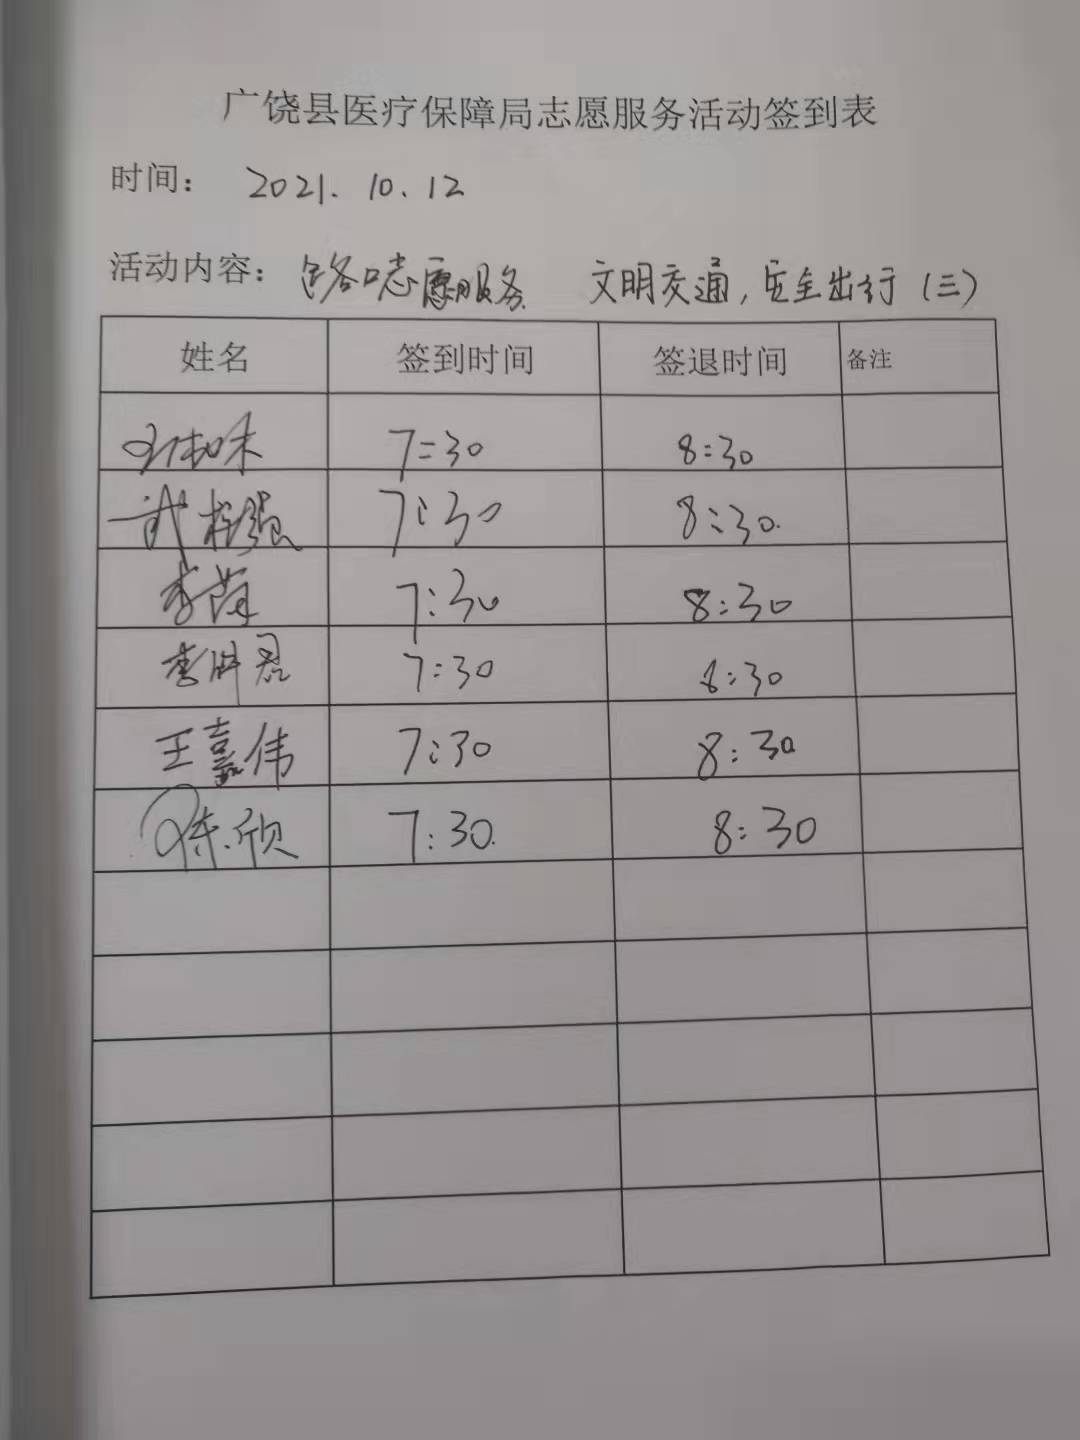 广饶县医疗保障局志愿服务活动签到表
时间： 2021.10.12
活动内容： 路口志愿服务 文明交通，安全出行（三）
姓名 签到时间 签退时间 备注
7:30 8:30
武 强 7:30 8:30
李 7:30 8:30
李胜君 7:30 8:30
王嘉伟 7:30 8:30
陈欣 7:30 8:30